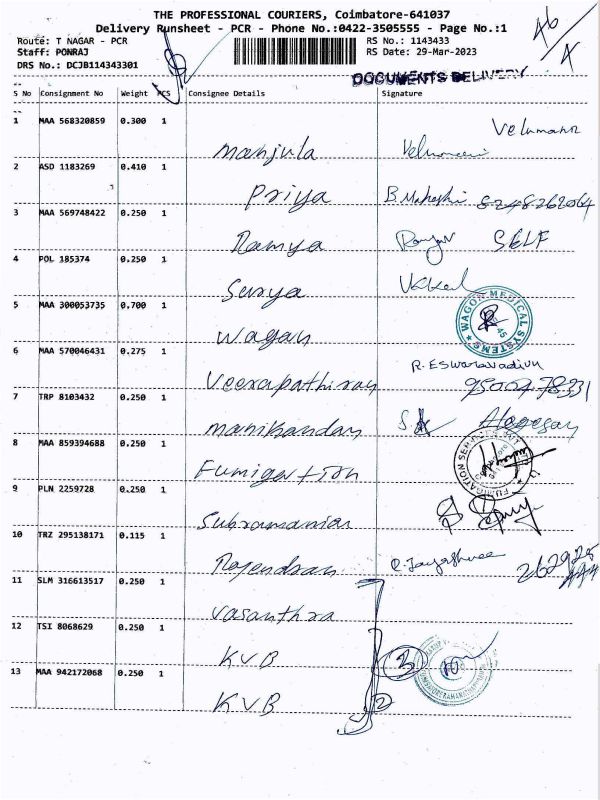 THE PROFESSIONAL COURIERS, Coimbatore-641037
Delivery Runsheet - PCR - Phone No.:0422-3505555 - Page No.:1
Route: T NAGAR - PCR
RS No.: 1143433
Staff: PONRAJ
RS Date: 29-Mar-2023
DRS No.: DCJB114343301
DOCUMENTS DELIVERY
S No Consignment No Weight PCS Consignee Details Signature
1 MAA 568320859 0.300 1
Velumani
Manjula
2 ASD 1183269 0.410 1
Priya B. Maheshi 8248262064
3 MAA 569748422 0.250 1
Ramya SELF
4 POL 185374 0.250 1
Surya
5 MAA 300053735 0.700 1
WAGON MEDICAL SYSTEMS
Wagan
6 MAA 570046431 0.275 1
R. Eswaravadivu
Veerapathiran
7 TRP 8103432 0.250 1
Manikandan Alagesan
8 MAA 859394688 0.250 1
Fumigation
9 PLN 2259728 0.250 1
Subramanian
10 TRZ 295138171 0.115 1
Rajendran R. Jayashree
11 SLM 316613517 0.250 1
Vasanthra
12 TSI 8068629 0.250 1
KVB 3
13 MAA 942172068 0.250 1
KVB 2